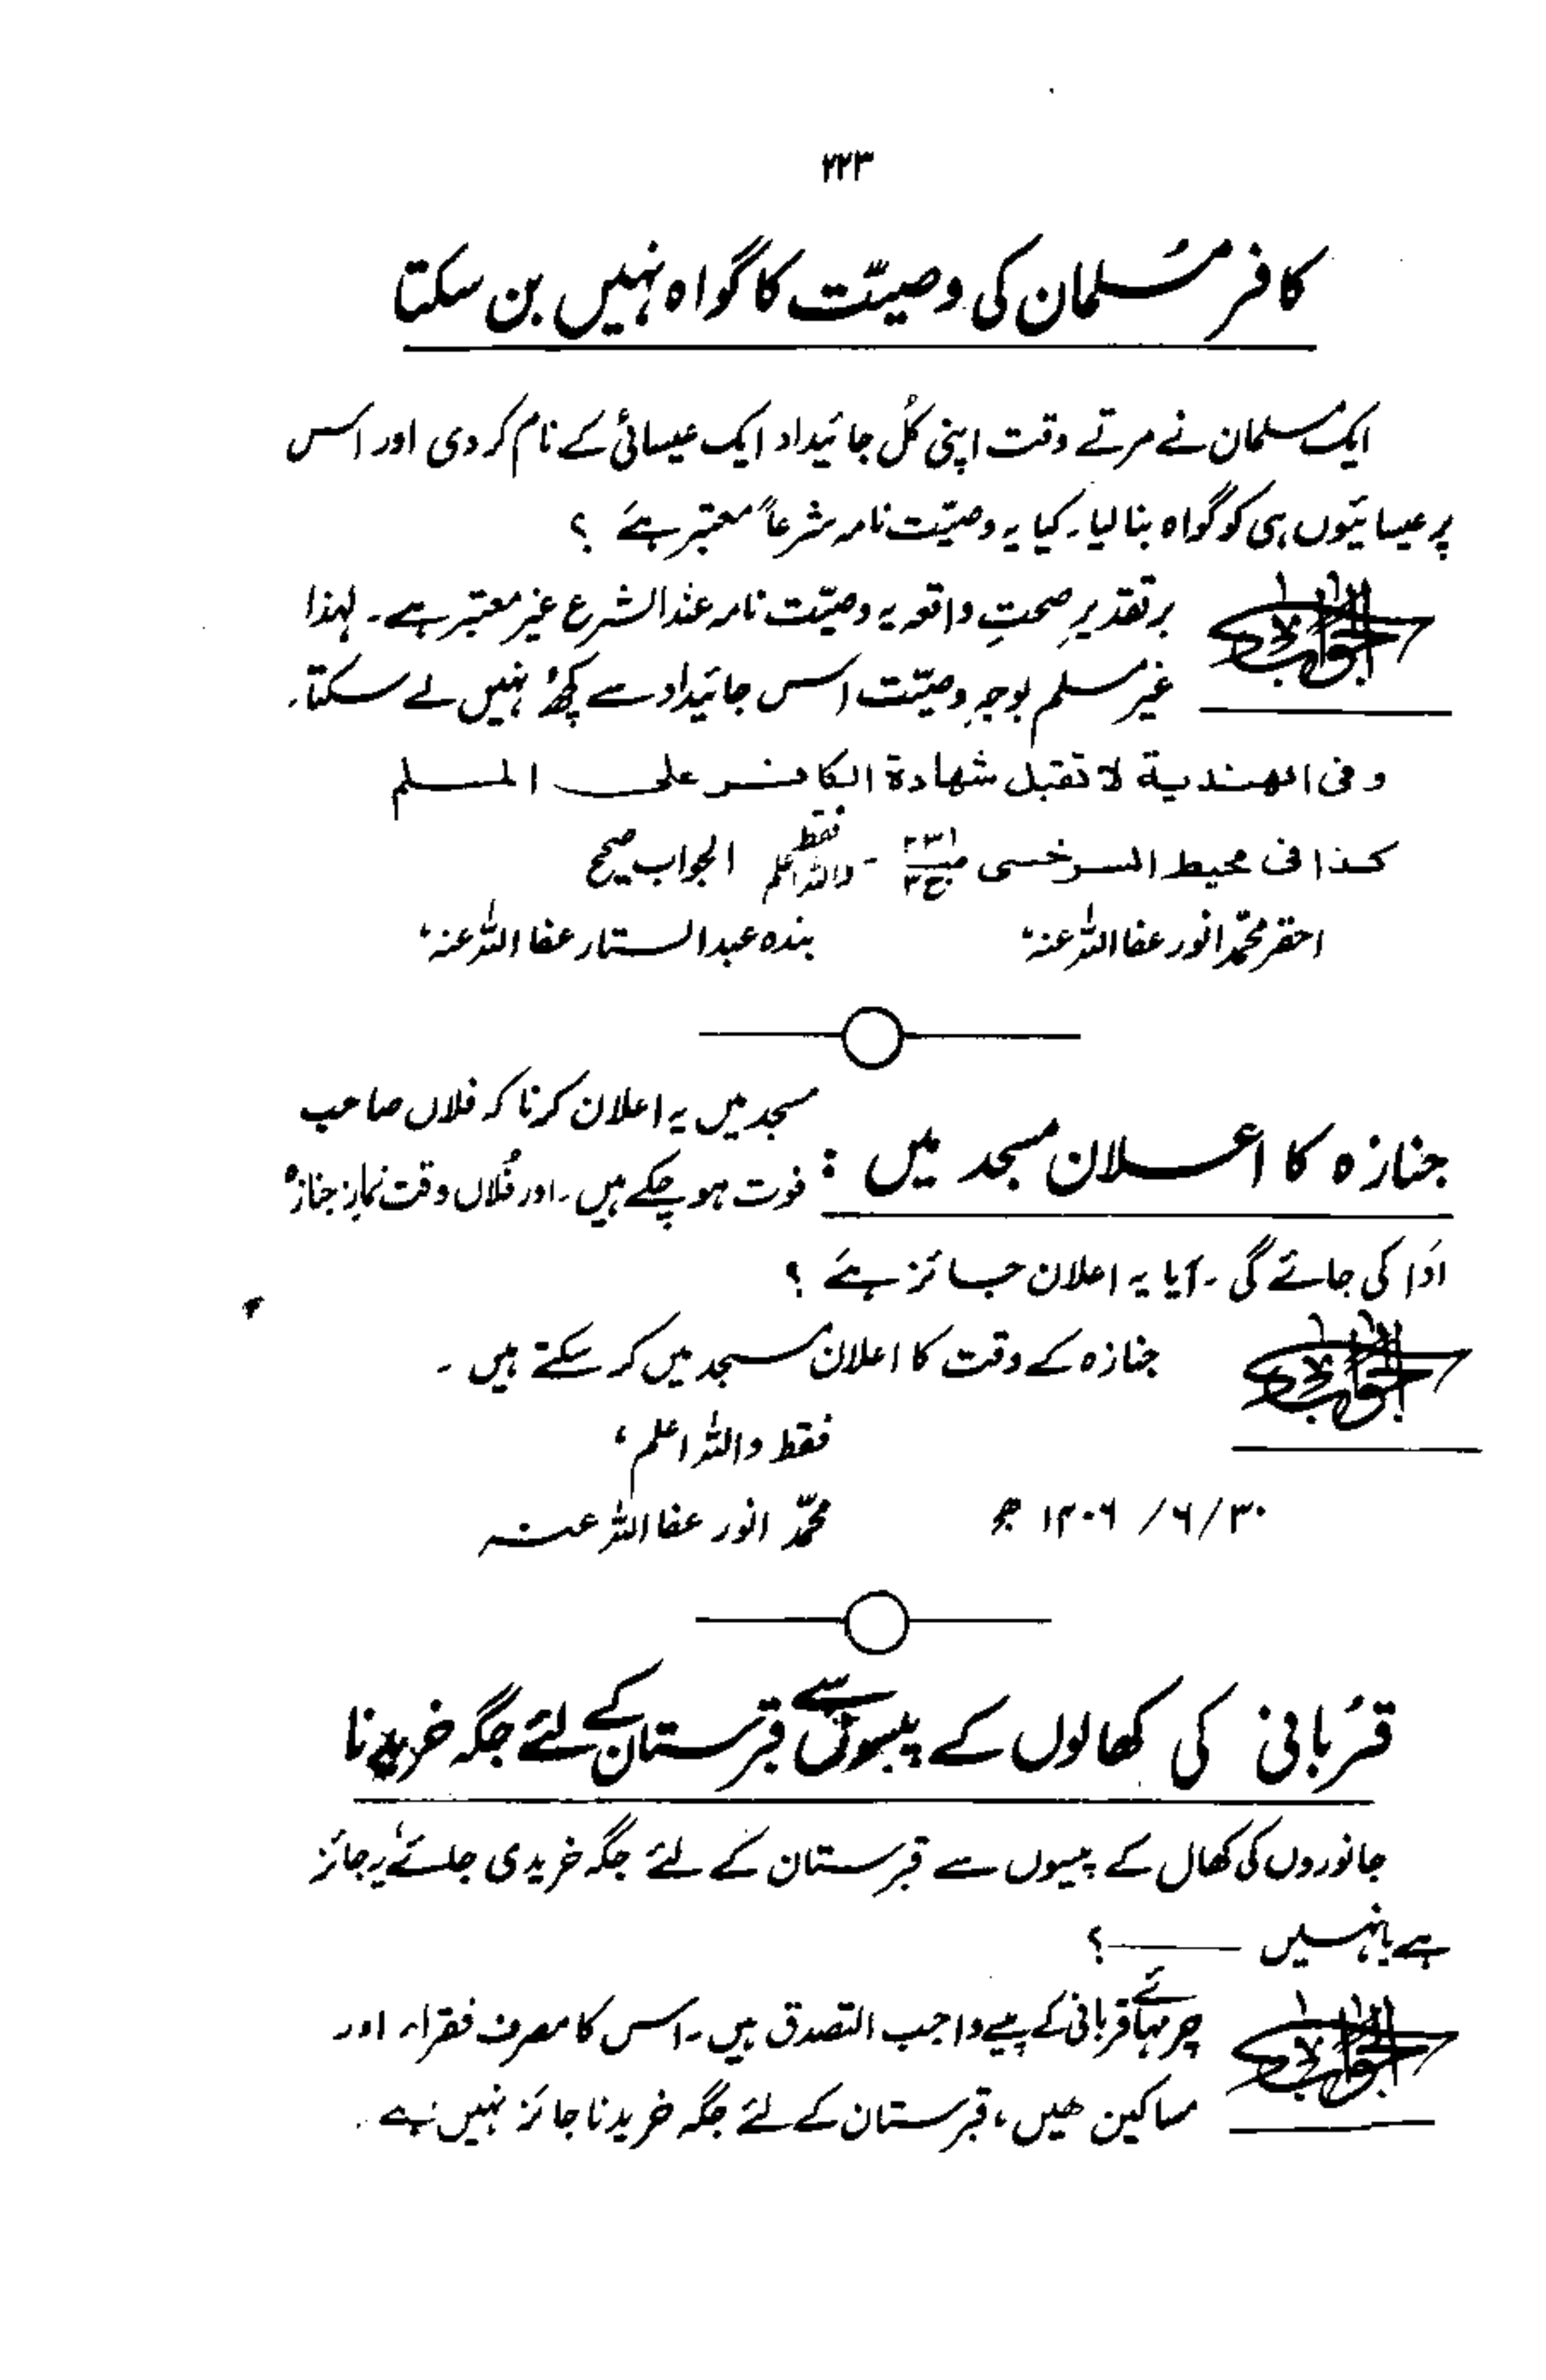 ۲۲۳
کافر مُسلمان کی وصیّت کا گواہ نہیں بن سکتا
ایک مسلمان نے مرتے وقت اپنی کُل جائیداد ایک عیسائی کے نام کر دی اور اس
پر عیسائیوں ہی کو گواہ بنا لیا۔ کیا یہ وصیّت نامہ شرعاً معتبر ہے ؟
الجواب
برتقدیرِ صحتِ واقعہ یہ وصیّت نامہ عندالشرع غیر معتبر ہے۔ لہذا
غیر مسلم بوجہِ وصیّت اس جائیداد سے کچھ نہیں لے سکتا۔
وفی الهندية لا تقبل شهادة الكافر على المسلم
كذا فی محيط السرخسی ج۳ - فقط واللہ اعلم الجواب صحیح
احقر محمّد انور عفا اللہ عنہ، بندہ عبدالستار عفا اللہ عنہ،
مسجد میں یہ اعلان کرنا کہ فلاں صاحب
جنازہ کا اعلان مسجد میں :
فوت ہو چکے ہیں۔ اور فُلاں وقت نمازِ جنازہ
ادَا کی جائے گی۔ آیا یہ اعلان جائز ہے ؟
الجواب
جنازہ کے وقت کا اعلان مسجد میں کر سکتے ہیں۔
فقط واللہ اعلم،
۳۰/ ۶/ ۱۴۰۶ ھ محمّد انور عفا اللہ عنہ
قُربانی کی کھالوں کے پیسوں سے قبرستان کے لئے جگہ خریدنا
جانوروں کی کھال کے پیسوں سے قبرستان کے لئے جگہ خریدی جائے یہ جائز
ہے یا نہیں ——؟
الجواب
چرمہائے قربانی کے پیسے واجب التصدق ہیں۔ اس کا مصرف فقراء اور
مساکین ھیں، قبرستان کے لئے جگہ خریدنا جائز نہیں ہے۔